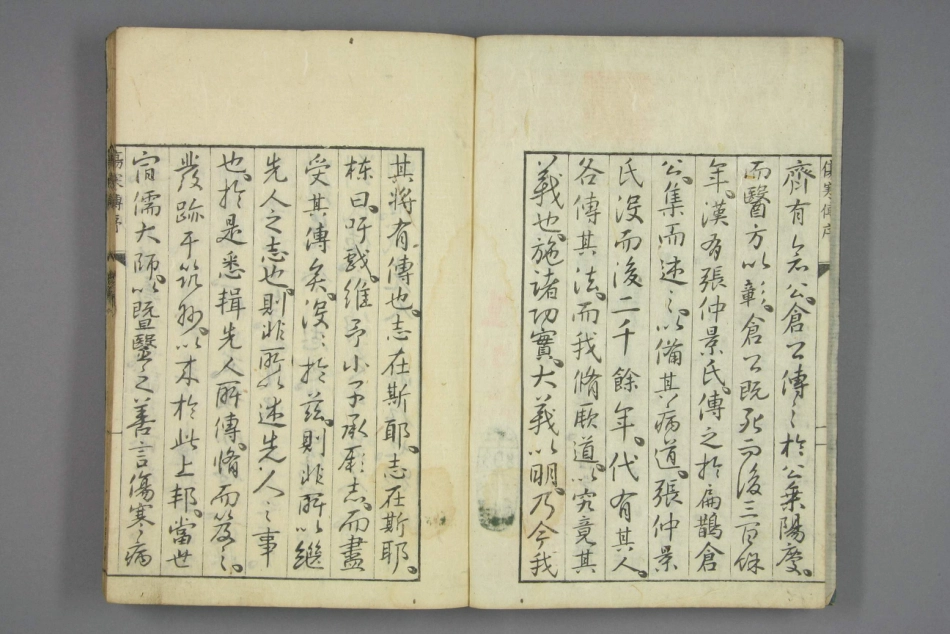 傷寒傳序
齊有倉公倉公傳之於公乘陽慶
而醫方以彰倉公既死而後三百餘
年漢有張仲景氏傳之於扁鵲倉
公集而述之以備其病道張仲景
氏沒而後二千餘年代有其人
各傳其法而我脩厥道以究竟其
義也施諸切實大義以明乃今我
其將有傳也志在斯耶志在斯耶
棟曰吁戲維予小子承厥志而盡
受其傳矣沒之於茲則非所以繼
先人之志也則非所以述先人之事
也於是悉輯先人所傳脩而笈之
發跡于筑紫以來於此上邦當世
宿儒大師以暨醫之善言傷寒之病
傷寒傳序